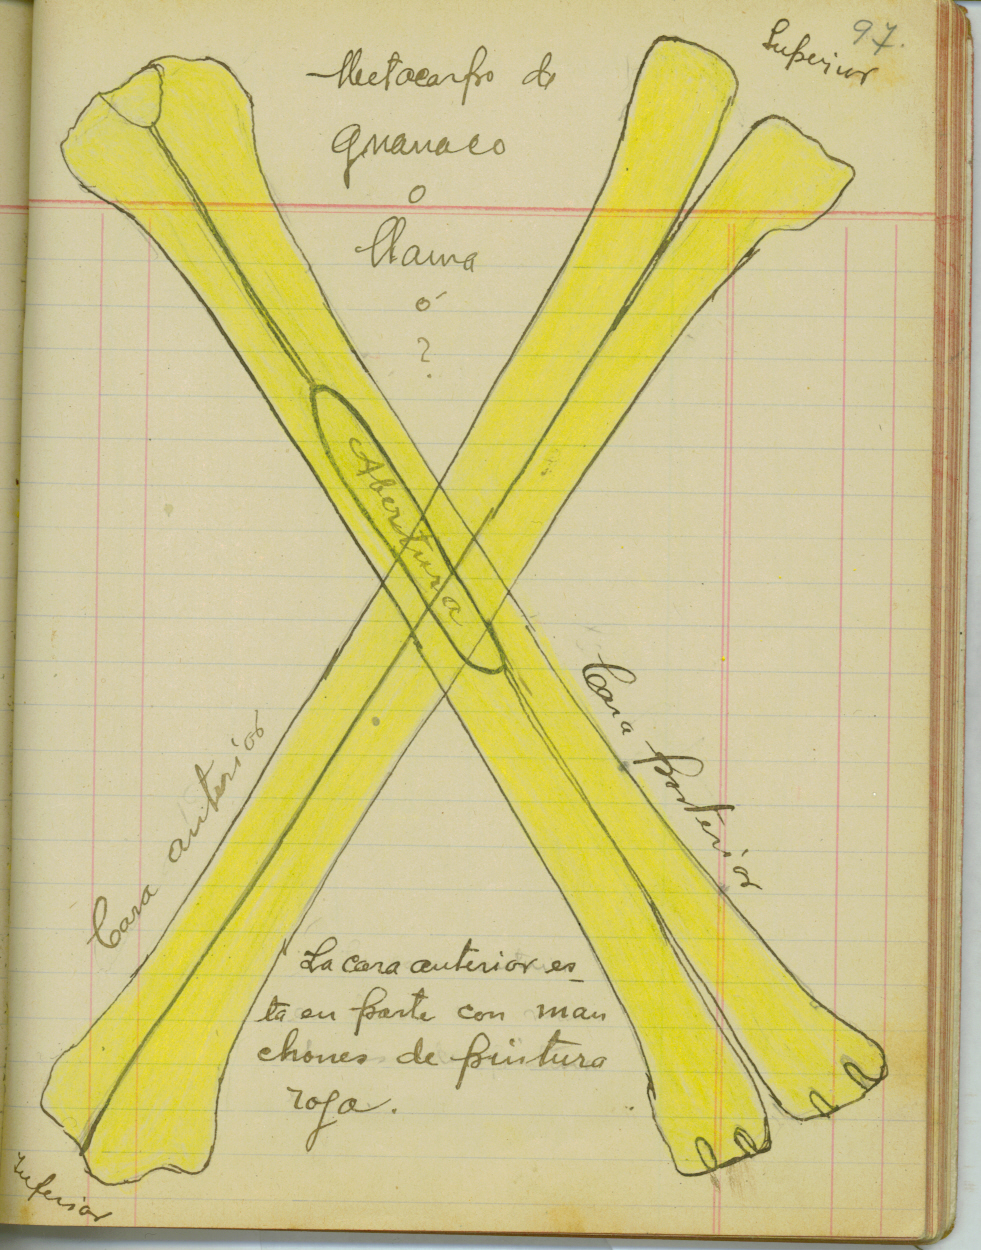 97.
Superior
Metacarpo de
guanaco
o
llama
ó
?
Abertura
Cara anterior
Cara porterior
La cara anterior es
ta en parte con man
chones de pintura
roja.
Inferior